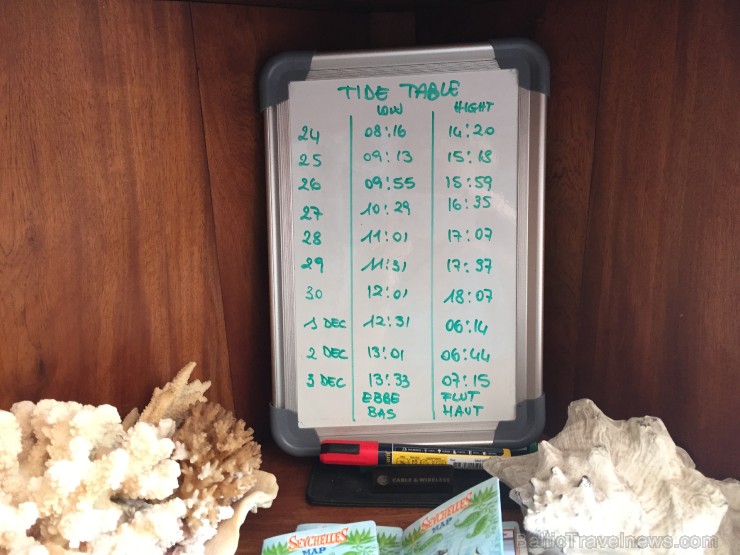 TIDE TABLE
LOW HIGHT
24 08:16 14:20
25 09:13 15:18
26 09:55 15:59
27 10:29 16:35
28 11:01 17:07
29 11:31 17:37
30 12:01 18:07
1 DEC 12:31 06:14
2 DEC 13:01 06:44
3 DEC 13:33 07:15
EBBE FLUT
BAS HAUT
CABLE & WIRELESS
SEYCHELLES
MAP
SEYCHELLES
MAP
BalticTravelnews.com